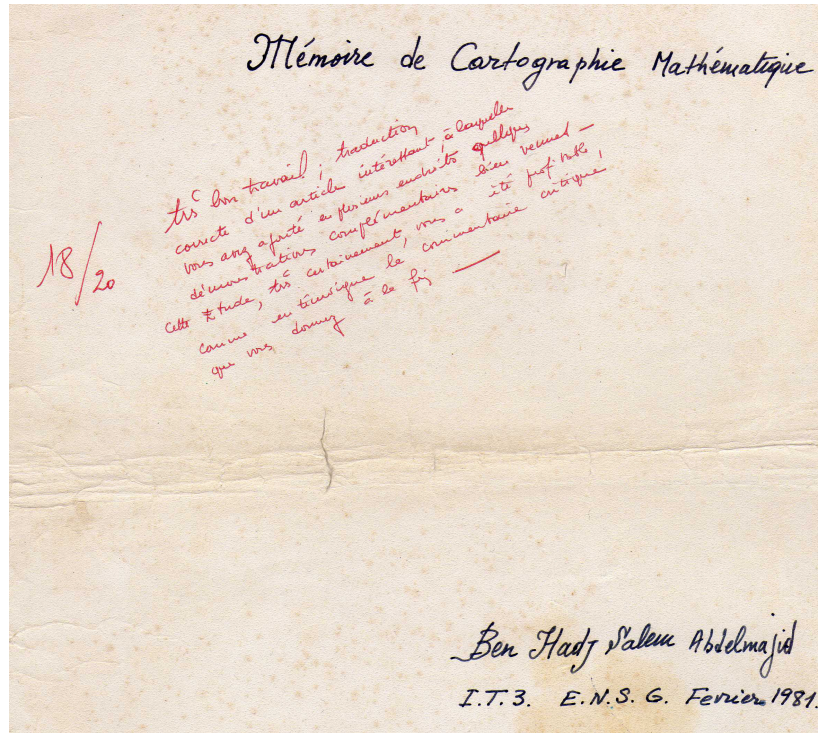 Mémoire de Cartographie Mathématique
18/20
très bon travail ; traduction
correcte d'un article intéressant, à laquelle
vous avez ajouté en plusieurs endroits quelques
démonstrations complémentaires bien venues —
Cette Etude, très certainement, vous a été profitable,
comme en témoigne le commentaire critique
que vous donnez à la fin —
Ben Hadj Salem Abdelmajid
I.T.3. E.N.S.G. Fevrier 1981.